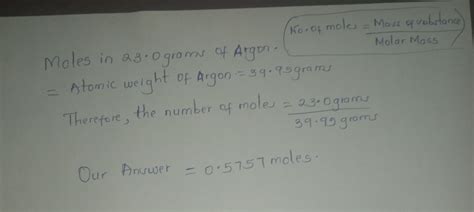 Moles in 23.0 grams of Argon.
(No. of moles = Mass of substance / Molar Mass)
= Atomic weight of Argon = 39.95 grams
Therefore, the number of moles = 23.0 grams / 39.95 grams
Our Answer = 0.5757 moles.